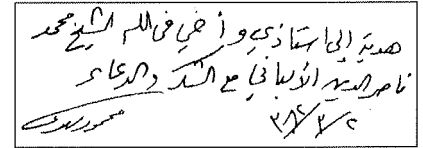 هدية إلى استاذي و أخي في الله الشيخ محمد
ناصر الدين الألباني مع الشكر والدعاء